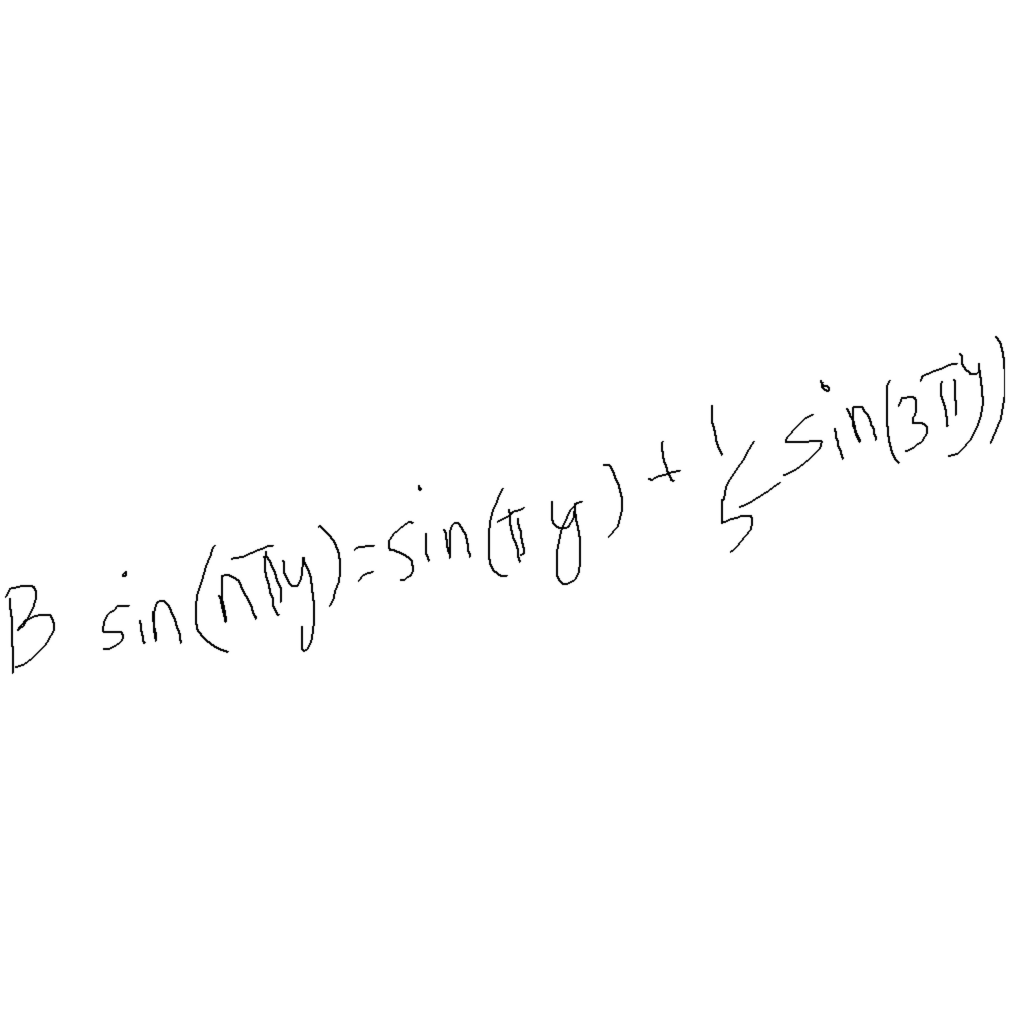 B sin(nπy)=sin(πy)+1/5 sin(3πy)